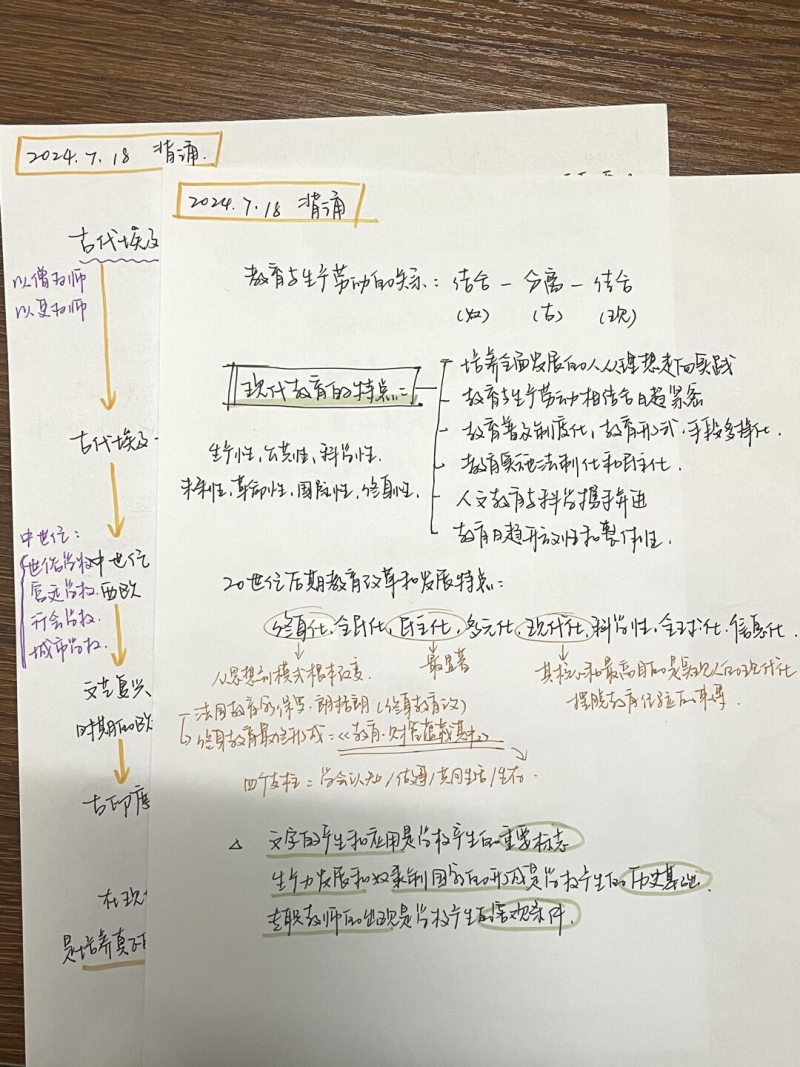 2024.7.18 背诵.
古代埃及
以僧为师
以吏为师
古代埃及
中世纪:
世俗学校
宫廷学校.
行会学校.
城市学校.
中世纪
西欧
文艺复兴
时期的欧
古印度
在现
是培养真
2024.7.18 背诵
教育与生产劳动的关系: 结合 - 分离 - 结合
(奴) (古) (现)
现代教育的特点:
生产性, 公共性, 科学性.
未来性, 革命性, 国际性, 终身性.
培养全面发展的人从理想走向实践
教育与生产劳动相结合日趋紧密
教育普及制度化, 教育形式、手段多样化.
教育实施法制化和民主化.
人文教育与科学携手并进
教育日趋开放性和整体性.
20世纪后期教育改革和发展特点:
终身化, 全民化, 民主化, 多元化, 现代化, 科学性, 全球化, 信息化.
从思想到模式根本改变
最显著
其核心和最高目的是实现人的现代化
摆脱教育经验的束缚
法国教育的保罗·朗格朗 (终身教育之父)
终身教育最终形成:《教育·财富蕴藏其中》
四个支柱: 学会认知/做事/共同生活/生存.
△ 文字的产生和应用是学校产生的重要标志
生产力发展和奴隶制国家的形成是学校产生的历史基础.
专职教师的出现是学校产生的客观条件.